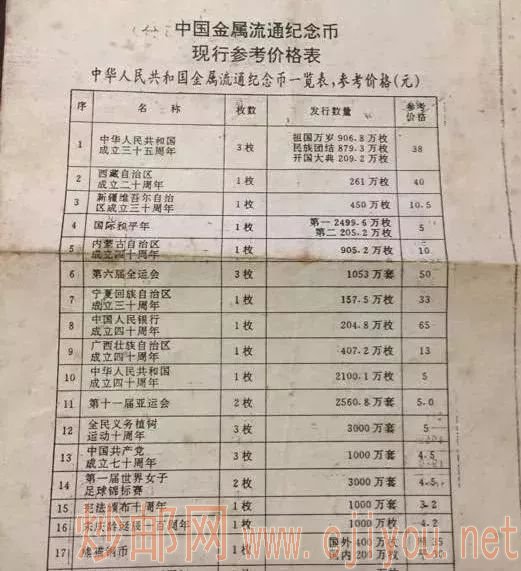 中国金属流通纪念币
现行参考价格表
中华人民共和国金属流通纪念币一览表,参考价格(元)
序 名 称 枚数 发行数量 参考价格
1 中华人民共和国成立三十五周年 3枚 祖国万岁 906.8万枚
民族团结 879.3万枚
开国大典 209.2万枚 38
2 西藏自治区成立二十周年 1枚 261万枚 40
3 新疆维吾尔自治区成立三十周年 1枚 450万枚 10.5
4 国际和平年 1枚 第一 2499.6万枚
第二 205.2万枚 5
5 内蒙古自治区成立四十周年 1枚 905.2万枚 10
6 第六届全运会 3枚 1053万套 50
7 宁夏回族自治区成立三十周年 1枚 157.5万枚 33
8 中国人民银行成立四十周年 1枚 204.8万枚 65
9 广西壮族自治区成立四十周年 1枚 407.2万枚 13
10 中华人民共和国成立四十周年 1枚 2100.1万枚 5
11 第十一届亚运会 2枚 2560.8万套 5.0
12 全民义务植树运动十周年 3枚 3000万套 5
13 中国共产党成立七十周年 3枚 1000万套 4.5
14 第一届世界女子足球锦标赛 2枚 3000万套 4.5
15 宪法颁布十周年 1枚 1000万套 3.2
16 宋庆龄诞辰一百周年 1枚 1000万枚 4.2
17 1枚 国外 400万枚 35
国内 200万枚
炒邮网
www.cjiyou.net